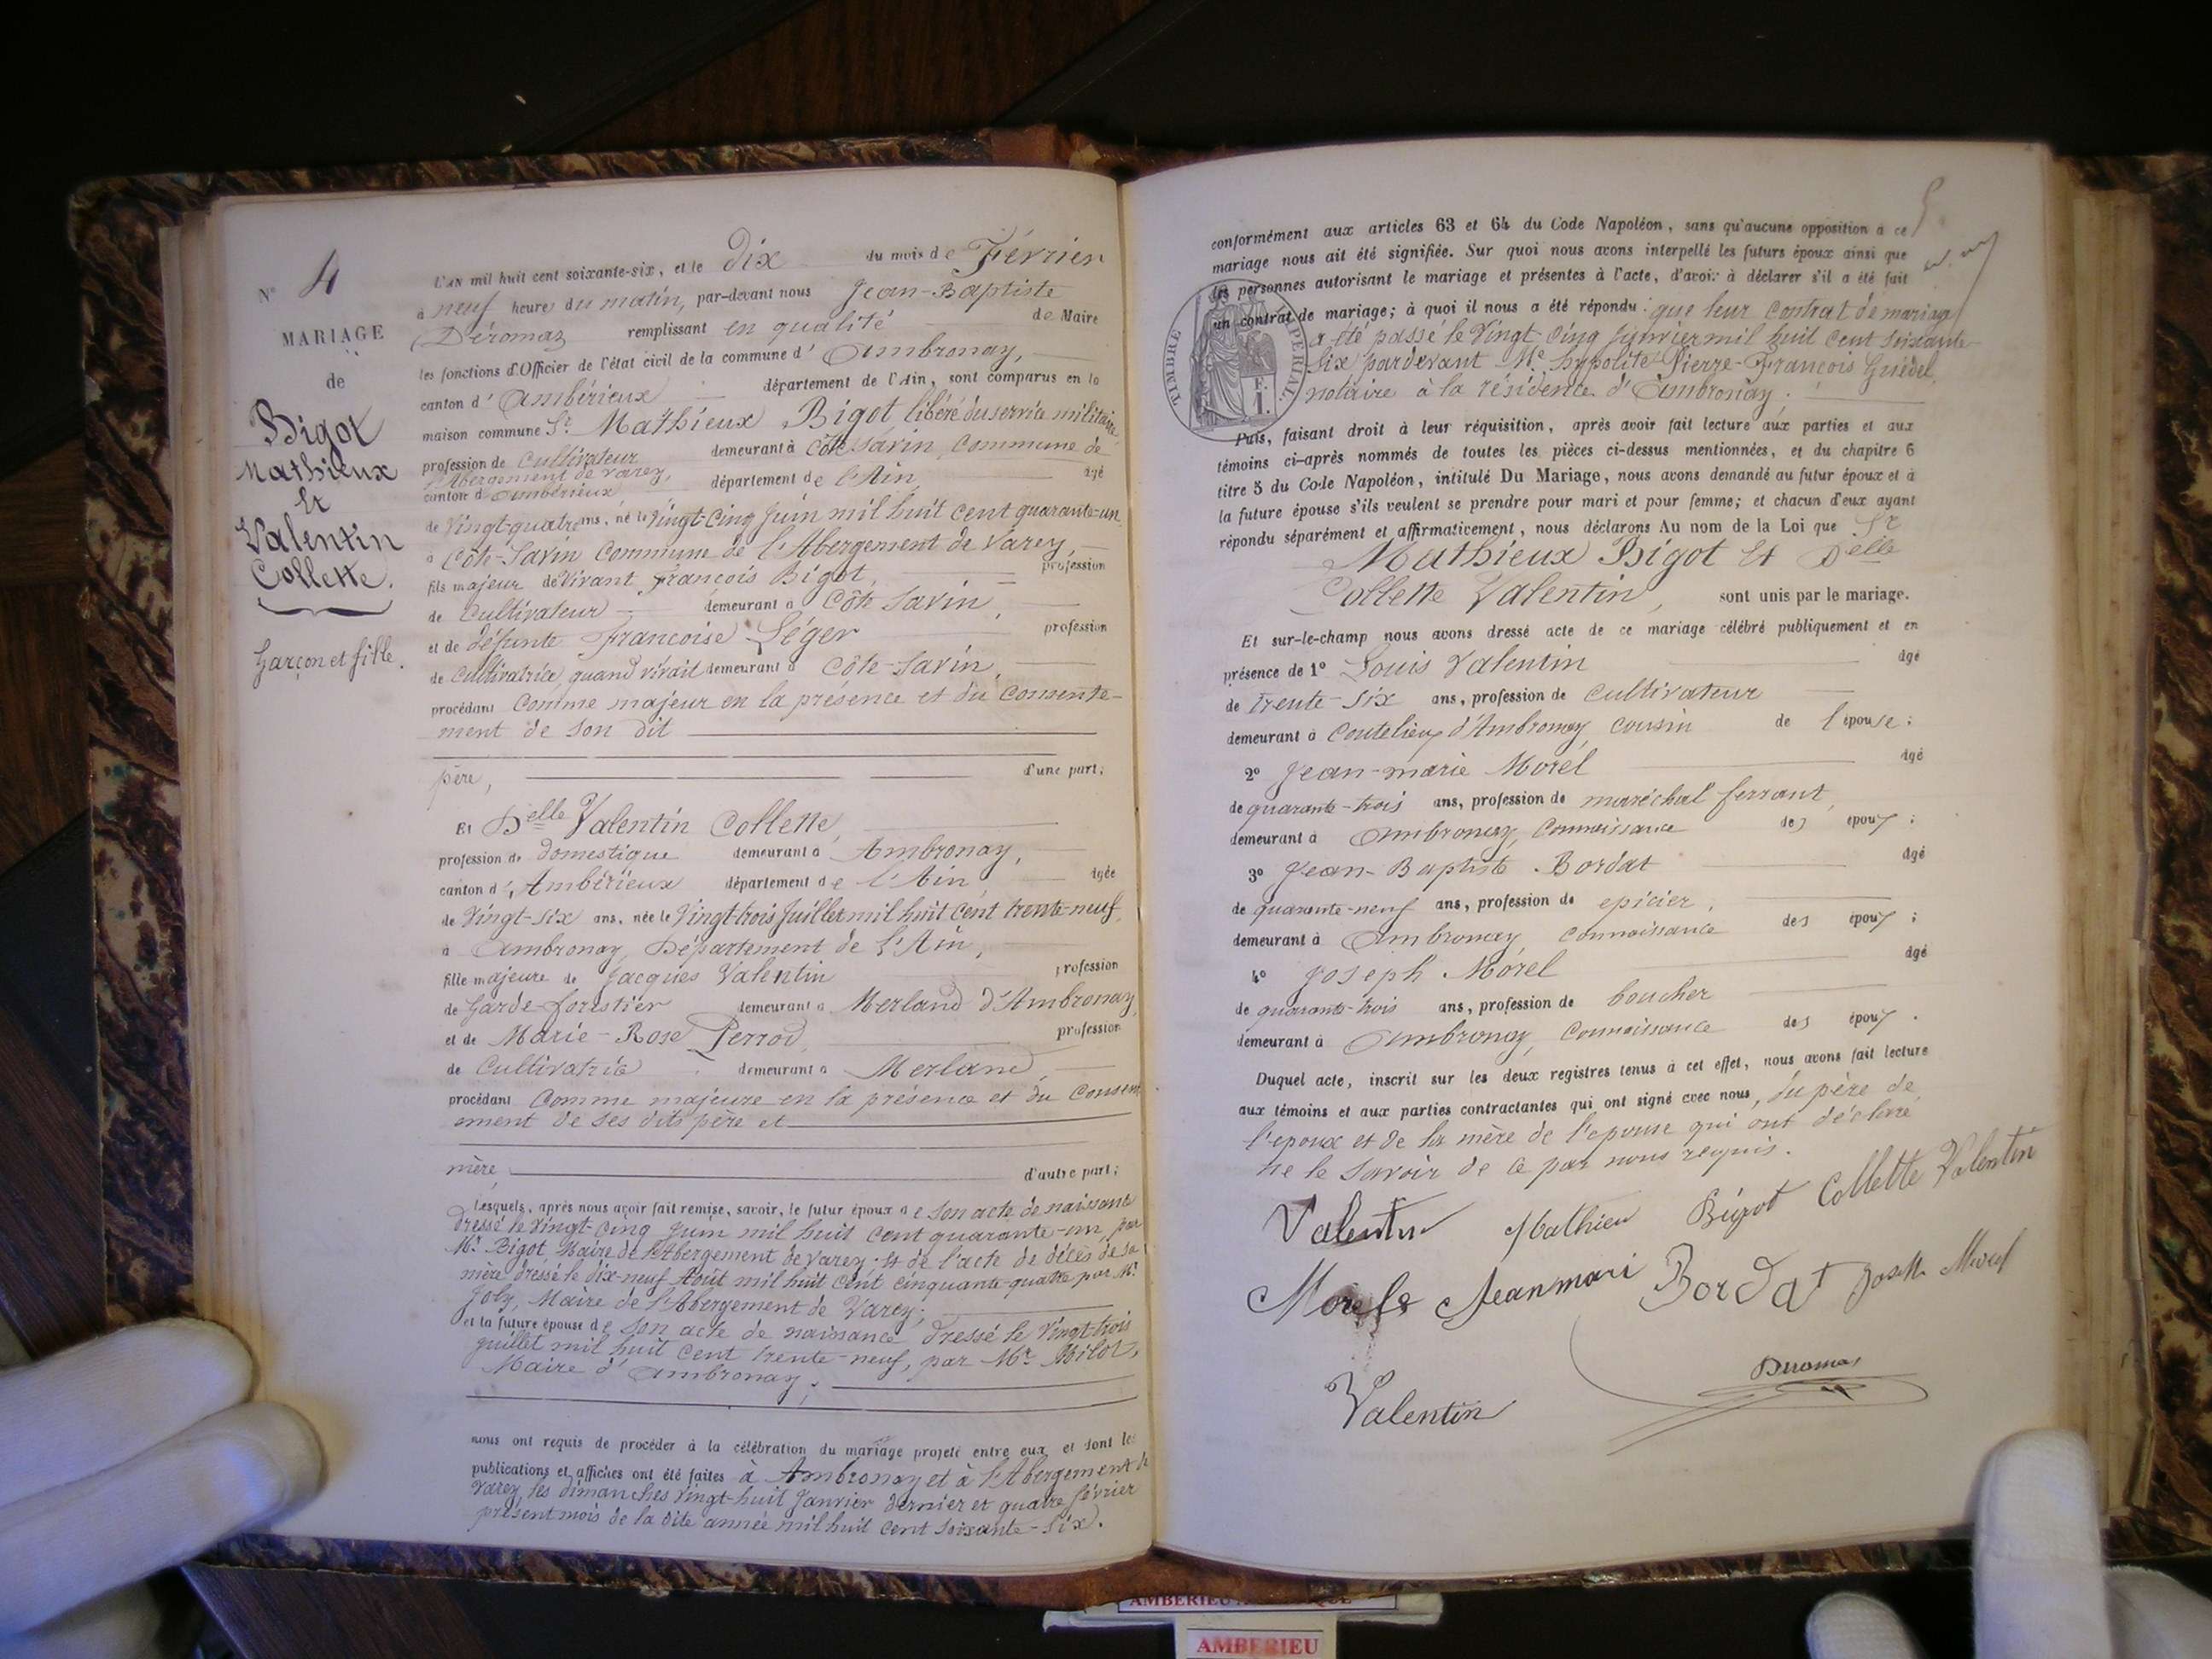 N° 4
MARIAGE
de
Bigot
Mathieux
Et
Valentin
Collette.
Garçon et fille.
L'AN mil huit cent soixante-six, et le Dix du mois de Février
à neuf heure du matin, par-devant nous Jean-Baptiste
Déromas remplissant en qualité de Maire
les fonctions d'Officier de l'état civil de la commune d' Ambronay,
canton d' Ambérieux département de l'Ain, sont comparus en la
maison commune Sr. Mathieux Bigot, libéré du service militaire,
profession de Cultivateur demeurant à Côte Savin, Commune de
l'Abergement de Varey,
canton d'Ambérieux département de l'Ain, âgé
de Vingt-quatre ans, né le Vingt-Cinq Juin mil huit cent quarante-un
à Côte-Savin Commune de l'Abergement de Varey,
fils majeur de Vivant François Bigot, profession
de Cultivateur demeurant à Côte Savin,
et de défunte Francoise Léger profession
de Cultivatrice, quand vivait demeurant à Côte-Savin,
procédant Comme majeur en la présence et du Consente-
ment de son dit
père, d'une part;
Et Delle Valentin Collette,
profession de Domestique demeurant à Ambronay,
canton d', Ambérieux département de l'Ain, âgée
de Vingt-six ans, née le Vingt-trois Juillet mil huit Cent trente-neuf,
à Ambronay, Département de l'Ain,
fille majeure de Jacques Valentin profession
de Garde-forestier demeurant à Merland d'Ambronay,
et de Marie-Rose Perrod, profession
de Cultivatrice demeurant à Merland,
procédant Comme majeure en la présence et du Consen
ement de ses dits père et
mère, d'autre part;
Lesquels, après nous avoir fait remise, savoir, le futur époux de Son acte de naissance
Dressé le Vingt-Cinq Juin mil huit Cent quarante-un, par
Mr. Bigot, Maire de l'Abergement de Varey; Et de l'acte de décès de sa
mère dressé le dix-neuf Août mil huit Cent Cinquante-quatre par Mr.
Joly, Maire de l'Abergement de Varey;
et la future épouse de Son acte de naissance Dressé le Vingt-trois
Juillet mil huit Cent trente-neuf, par Mr. Bilot,
Maire d'Ambronay;
nous ont requis de procéder à la célébration du mariage projeté entre eux et dont les
publications et affiches ont été faites à Ambronay et à l'Abergement de
Varey, les dimanches Vingt-huit Janvier dernier et quatre février
présent mois de la dite année mil huit Cent Soixante-Six.
5
conformément aux articles 63 et 64 du Code Napoléon, sans qu'aucune opposition à ce
mariage nous ait été signifiée. Sur quoi nous avons interpellé les futurs époux ainsi que
les personnes autorisant le mariage et présentes à l'acte, d'avoir à déclarer s'il a été fait
un contrat de mariage; à quoi il nous a été répondu: que leur Contrat de mariage
a été passé le Vingt-Cinq Janvier mil huit Cent Soixante-
Six pardevant Me. hypolite Pierre-François Guédel,
notaire à la résidence d'Ambronay;
TIMBRE IMPERIAL.
Puis, faisant droit à leur réquisition, après avoir fait lecture aux parties et aux
témoins ci-après nommés de toutes les pièces ci-dessus mentionnées, et du chapitre 6
titre 5 du Code Napoléon, intitulé Du Mariage, nous avons demandé au futur époux et à
la future épouse s'ils veulent se prendre pour mari et pour femme; et chacun d'eux ayant
répondu séparément et affirmativement, nous déclarons Au nom de la Loi que Sr
Mathieux Bigot et Delle
Collette Valentin, sont unis par le mariage.
Et sur-le-champ nous avons dressé acte de ce mariage célébré publiquement et en
présence de 1° Louis Valentin âgé
de trente-six ans, profession de Cultivateur
demeurant à Coutelieu d'Ambronay, cousin de l'épouse;
2° Jean-marie Morel âgé
de quarante-trois ans, profession de maréchal ferrant,
demeurant à Ambronay, Connaissance des époux;
3° Jean-Baptiste Bordat âgé
de quarante-neuf ans, profession de epicier,
demeurant à Ambronay, connaissance des époux;
4° Joseph Morel âgé
de quarante-trois ans, profession de boucher
demeurant à Ambronay, Connaissance des époux.
Duquel acte, inscrit sur les deux registres tenus à cet effet, nous avons fait lecture
aux témoins et aux parties contractantes qui ont signé avec nous, du père de
l'epoux et de la mère de l'epouse qui ont déclaré
ne le Savoir de ce par nous requis.
Valentin Mathieu Bigot Collette Valentin
Morel Jeanmari Bordat Joseph Morel
Valentin Deromas
AMBERIEU